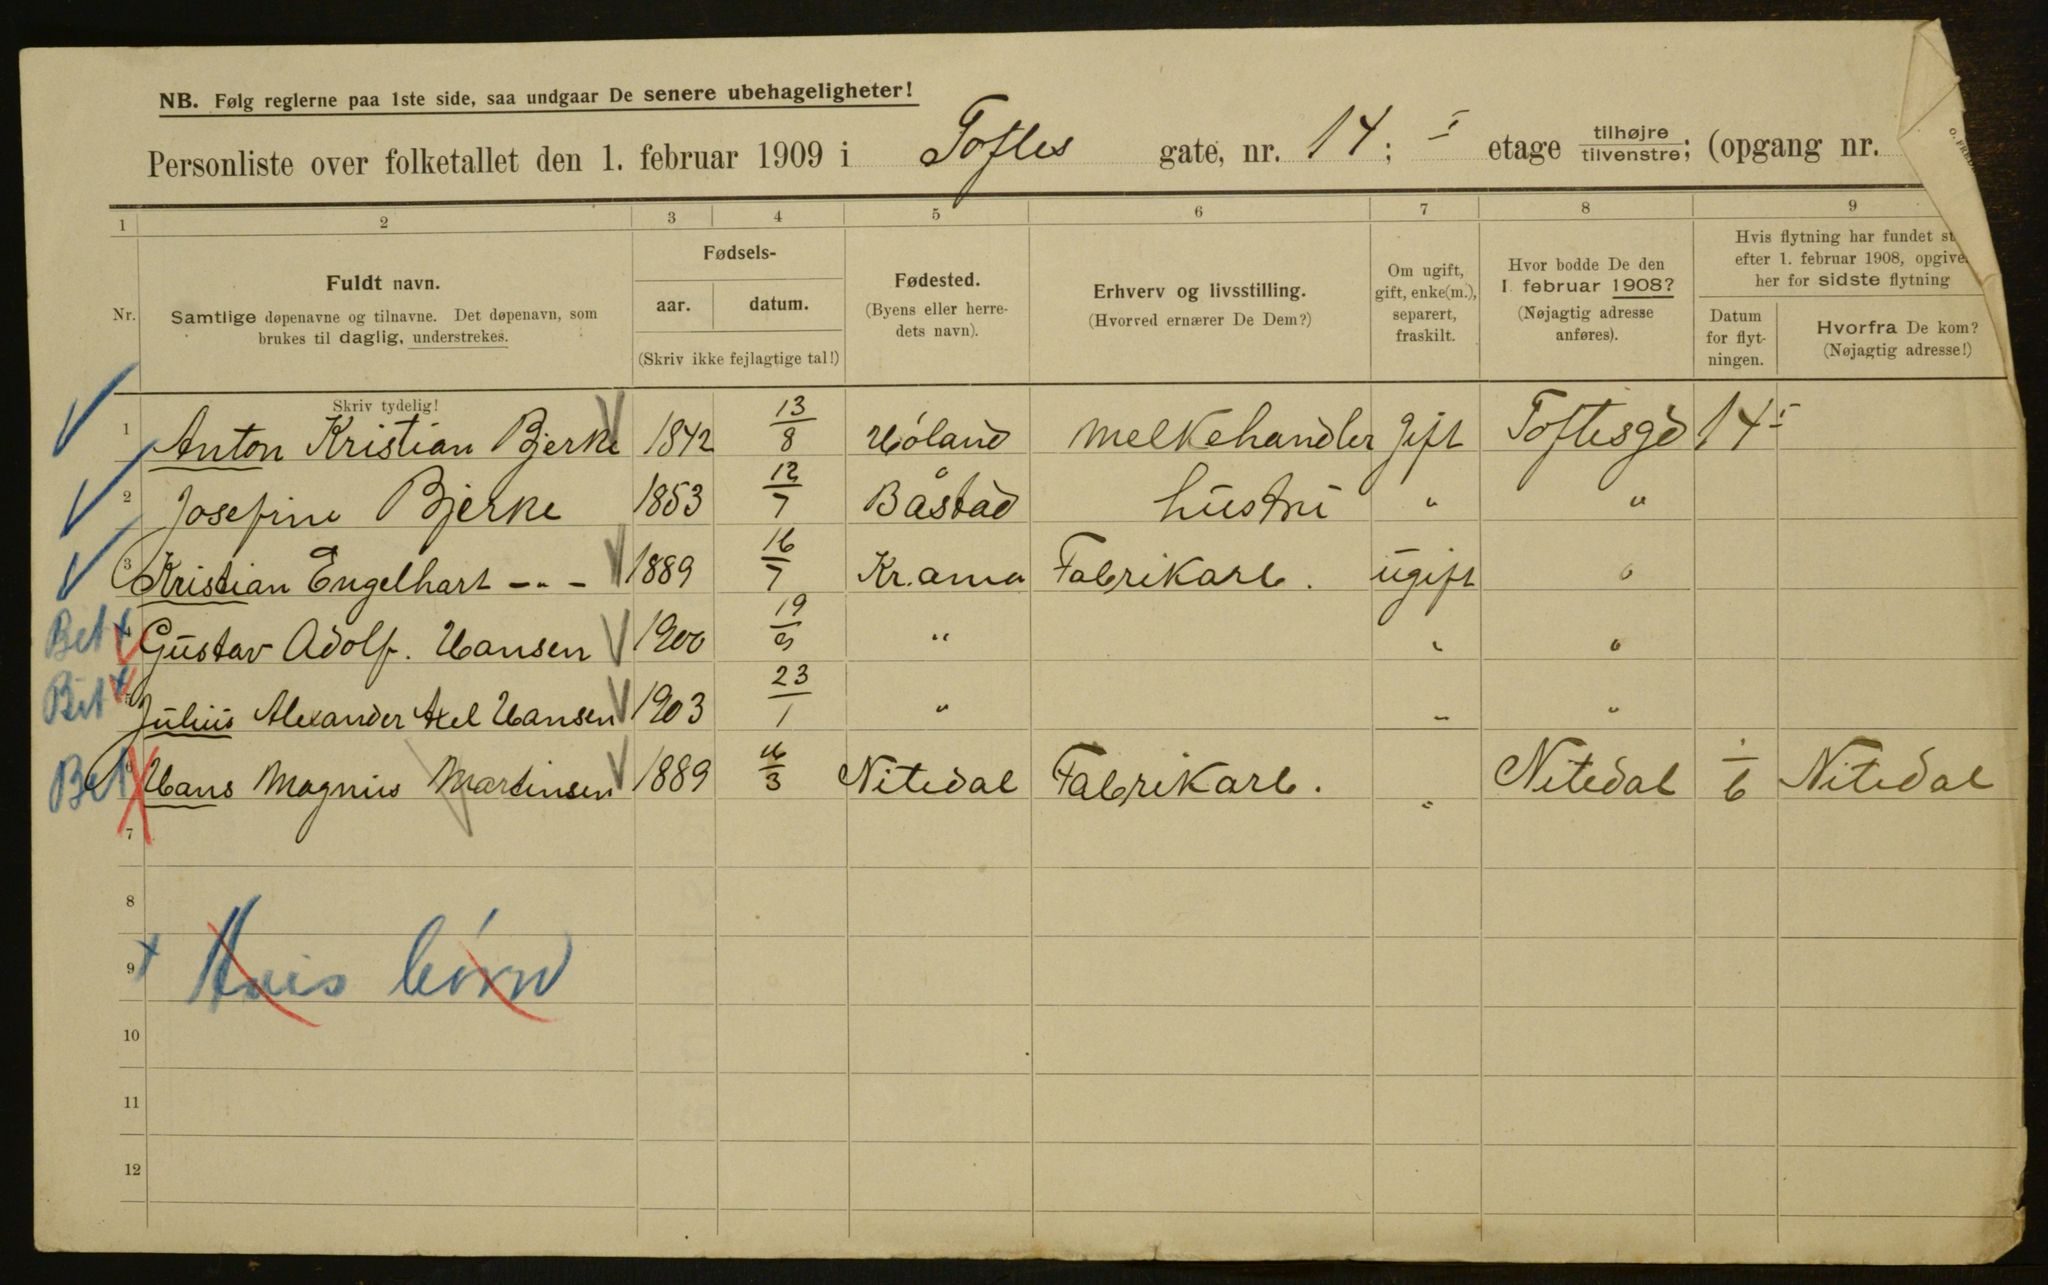 NB. Følg reglerne paa 1ste side, saa undgaar De senere ubehageligheter!
Personliste over folketallet den 1. februar 1909 i Toftes gate, nr. 14; I etage tilhøjre/tilvenstre; (opgang nr.
1 2 3 4 5 6 7 8 9
Nr.
Fuldt navn.
Samtlige døpenavne og tilnavne. Det døpenavn, som
brukes til daglig, understrekes.
Fødsels-
aar. datum.
(Skriv ikke fejlagtige tal!)
Fødested.
(Byens eller herre-
dets navn).
Erhverv og livsstilling.
(Hvorved ernærer De Dem?)
Om ugift,
gift, enke(m.),
separert,
fraskilt.
Hvor bodde De den
1 februar 1908?
(Nøjagtig adresse
anføres).
Hvis flytning har fundet st
efter 1. februar 1908, opgive
her for sidste flytning
Datum
for flyt-
ningen.
Hvorfra De kom?
(Nøjagtig adresse!)
Skriv tydelig!
1 Anton Kristian Bjerke 1842 13/8 Høland melkehandler gift Toftesgd 14 I
2 Josefine Bjerke 1853 12/7 Båstad hustru " "
3 Kristian Engelhart -"- 1889 16/7 Kr.ania Fabrikarb. ugift "
Bet 4 Gustav Adolf. Hansen 1900 19/9 " " "
Bet 5 Julius Alexander Axel Hansen 1903 23/1 " " "
Bet 6 Hans Magnus Martinsen 1889 /3 Nitedal Fabrikarb. " Nitedal 1/6 Nitedal
7
8
9 børn
10
11
12